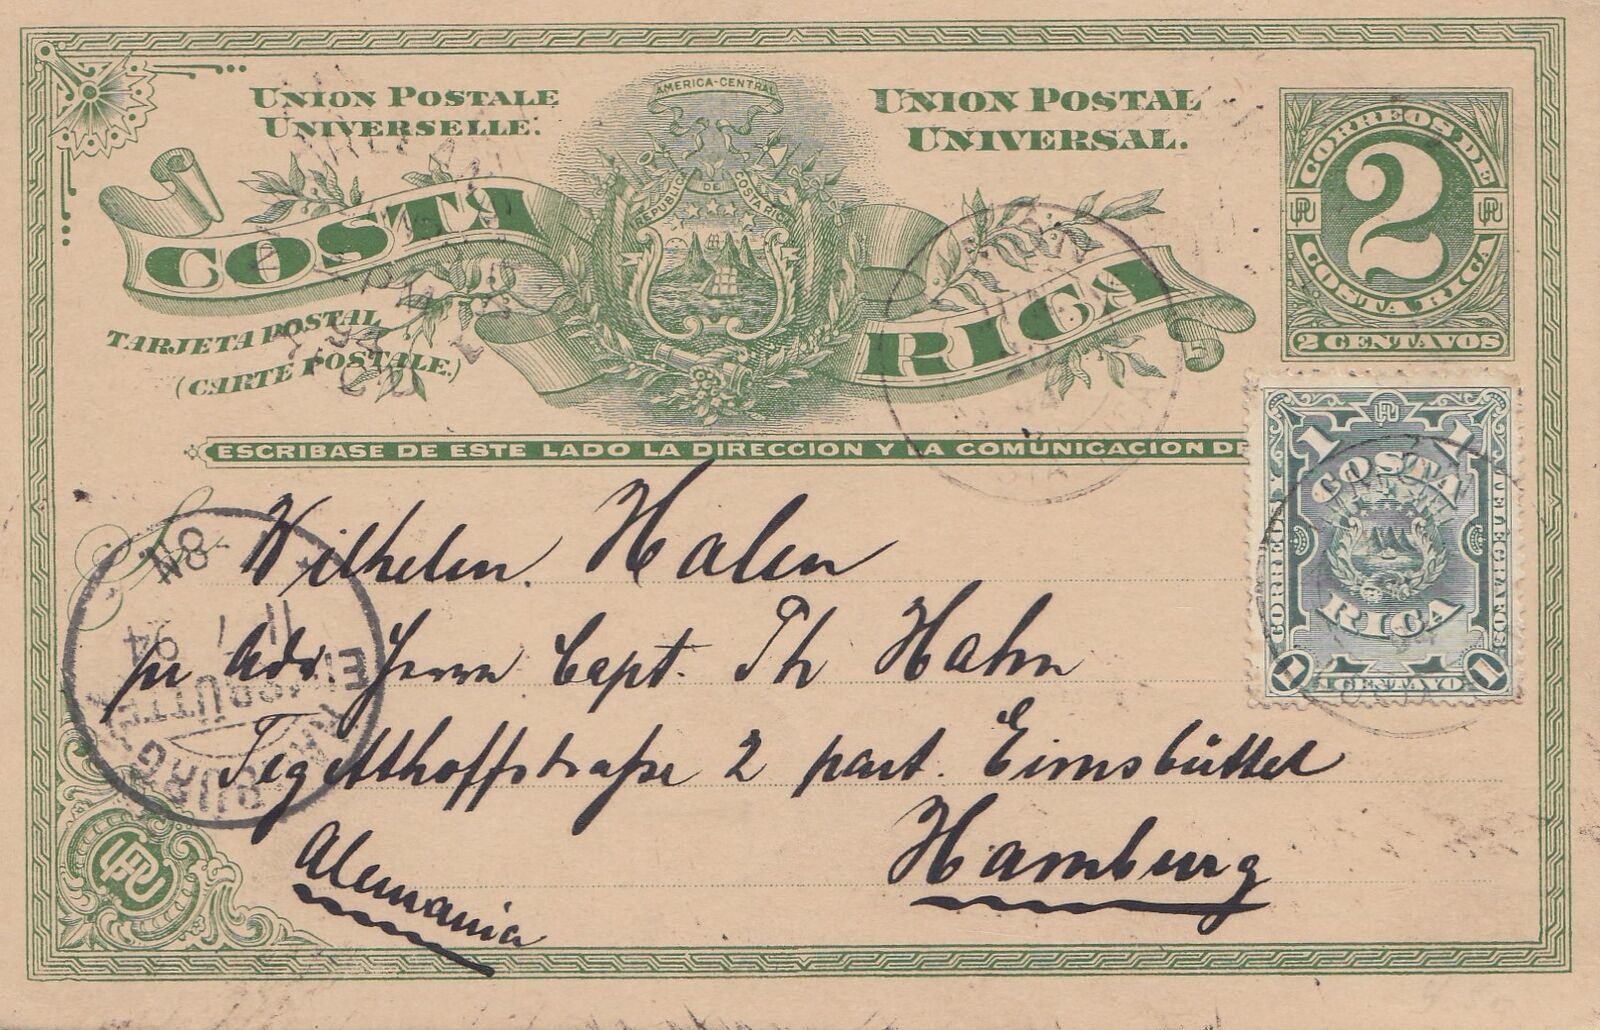 UNION POSTALE UNIVERSELLE.
UNION POSTAL UNIVERSAL.
AMERICA-CENTRAL
REPUBLICA DE COSTA RICA
COSTA RICA
TARJETA POSTAL
(CARTE POSTALE.)
CORREOS DE
2
COSTA RICA
2 CENTAVOS
ESCRIBASE DE ESTE LADO LA DIRECCION Y LA COMUNICACION DE
1 1
COSTA
RICA
CORREOS Y TELEGRAFOS
1 1 CENTAVO 1
Wilhelm Halen
pr Adr. Herrn Capt. Th Hahn
Tegetthoffstraße 2 part. Eimsbüttel
Hamburg
Alemania
8N
11/1
94
EIMSBÜTTEL
HAMBURG
NEW ORLEANS
94